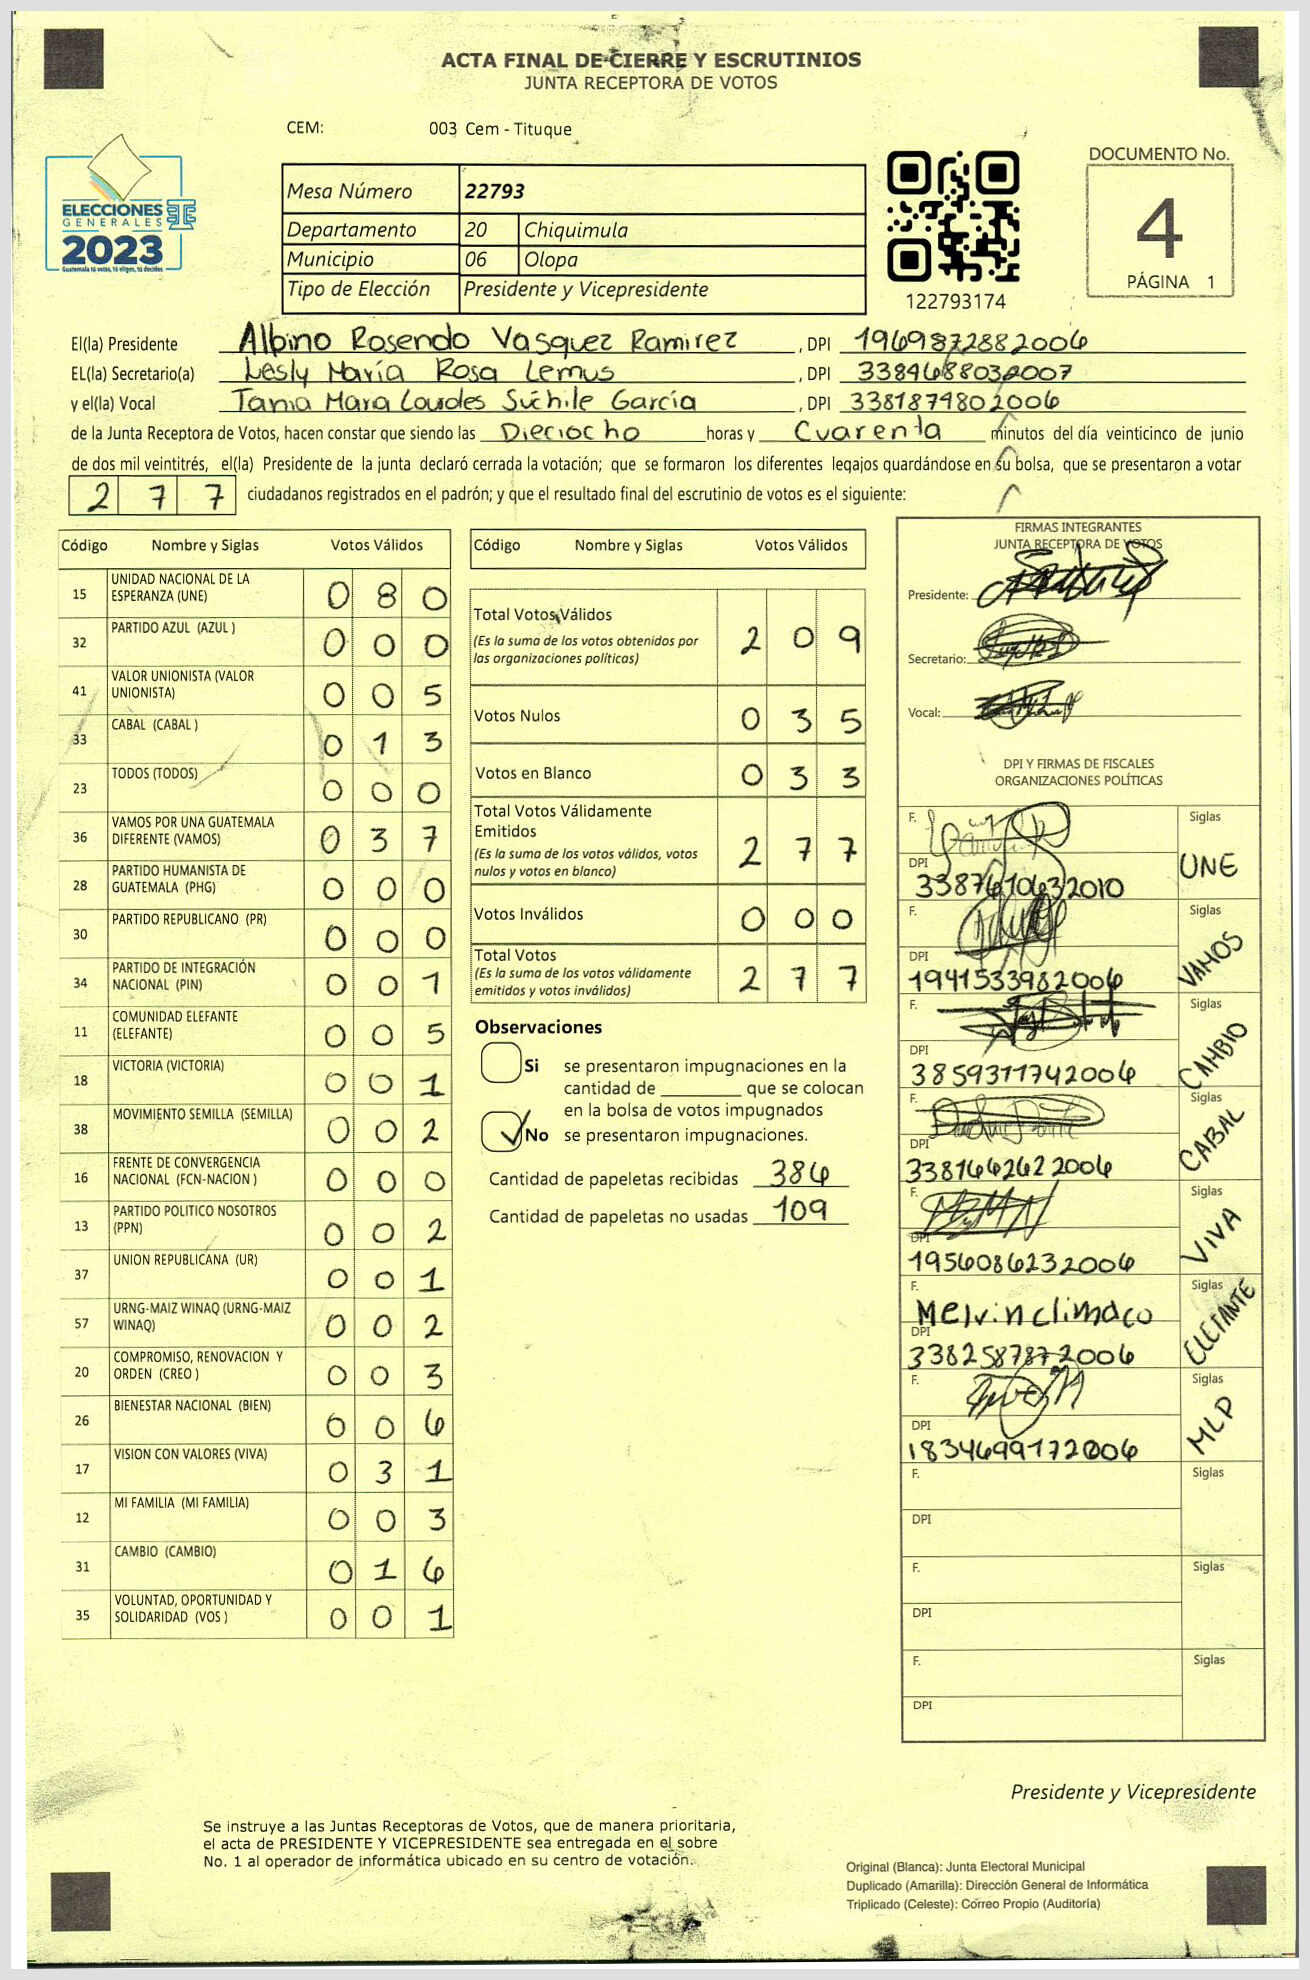 ACTA FINAL DE CIERRE Y ESCRUTINIOS
JUNTA RECEPTORA DE VOTOS
CEM: 003 Cem - Tituque
ELECCIONES
GENERALES
2023
Guatemala tú votas, tú eliges, tú decides
Mesa Número 22793
Departamento 20 Chiquimula
Municipio 06 Olopa
Tipo de Elección Presidente y Vicepresidente
122793174
DOCUMENTO No.
4
PÁGINA 1
El(la) Presidente Albino Rosendo Vasquez Ramirez , DPI 1969872882006
EL(la) Secretario(a) Lesly María Rosa Lemus , DPI 3384688032007
y el(la) Vocal Tania Maria Lourdes Súchile García , DPI 3381879802006
de la Junta Receptora de Votos, hacen constar que siendo las Dieciocho horas y Cuarenta minutos del día veinticinco de junio
de dos mil veintitrés, el(la) Presidente de la junta declaró cerrada la votación; que se formaron los diferentes legajos guardándose en su bolsa, que se presentaron a votar
277 ciudadanos registrados en el padrón; y que el resultado final del escrutinio de votos es el siguiente:
Código Nombre y Siglas Votos Válidos
15 UNIDAD NACIONAL DE LA ESPERANZA (UNE) 0 8 0
32 PARTIDO AZUL (AZUL ) 0 0 0
41 VALOR UNIONISTA (VALOR UNIONISTA) 0 0 5
33 CABAL (CABAL ) 0 1 3
23 TODOS (TODOS) 0 0 0
36 VAMOS POR UNA GUATEMALA DIFERENTE (VAMOS) 0 3 7
28 PARTIDO HUMANISTA DE GUATEMALA (PHG) 0 0 0
30 PARTIDO REPUBLICANO (PR) 0 0 0
34 PARTIDO DE INTEGRACIÓN NACIONAL (PIN) 0 0 1
11 COMUNIDAD ELEFANTE (ELEFANTE) 0 0 5
18 VICTORIA (VICTORIA) 0 0 1
38 MOVIMIENTO SEMILLA (SEMILLA) 0 0 2
16 FRENTE DE CONVERGENCIA NACIONAL (FCN-NACION ) 0 0 0
13 PARTIDO POLITICO NOSOTROS (PPN) 0 0 2
37 UNION REPUBLICANA (UR) 0 0 1
57 URNG-MAIZ WINAQ (URNG-MAIZ WINAQ) 0 0 2
20 COMPROMISO, RENOVACION Y ORDEN (CREO ) 0 0 3
26 BIENESTAR NACIONAL (BIEN) 0 0 6
17 VISION CON VALORES (VIVA) 0 3 1
12 MI FAMILIA (MI FAMILIA) 0 0 3
31 CAMBIO (CAMBIO) 0 1 6
35 VOLUNTAD, OPORTUNIDAD Y SOLIDARIDAD (VOS ) 0 0 1
Código Nombre y Siglas Votos Válidos
Total Votos Válidos 2 0 9
(Es la suma de los votos obtenidos por
las organizaciones políticas)
Votos Nulos 0 3 5
Votos en Blanco 0 3 3
Total Votos Válidamente
Emitidos 2 7 7
(Es la suma de los votos válidos, votos
nulos y votos en blanco)
Votos Inválidos 0 0 0
Total Votos 2 7 7
(Es la suma de los votos válidamente
emitidos y votos inválidos)
Observaciones
Si se presentaron impugnaciones en la
cantidad de ________ que se colocan
en la bolsa de votos impugnados
No se presentaron impugnaciones.
Cantidad de papeletas recibidas 386
Cantidad de papeletas no usadas 109
FIRMAS INTEGRANTES
JUNTA RECEPTORA DE VOTOS
Presidente:
Secretario:
Vocal:
DPI Y FIRMAS DE FISCALES
ORGANIZACIONES POLÍTICAS
F. Siglas UNE
DPI 3387610632010
F. Siglas VAMOS
DPI 1941533982006
F. Siglas CAMBIO
DPI 3859311742006
F. Siglas CABAL
DPI 3381662622006
F. Siglas VIVA
DPI 1956086232006
F. Melvin climaco Siglas ELEFANTE
DPI 3382587872006
F. Siglas MLP
DPI 1834699172006
F. Siglas
DPI
F. Siglas
DPI
F. Siglas
DPI
Presidente y Vicepresidente
Se instruye a las Juntas Receptoras de Votos, que de manera prioritaria,
el acta de PRESIDENTE Y VICEPRESIDENTE sea entregada en el sobre
No. 1 al operador de informática ubicado en su centro de votación.
Original (Blanca): Junta Electoral Municipal
Duplicado (Amarilla): Dirección General de Informática
Triplicado (Celeste): Correo Propio (Auditoría)